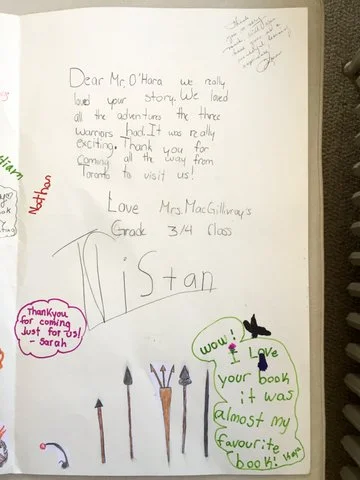 Thank
you so very
much. What
have you as a
beautiful
inspiring
Dear Mr. O'Hara we really
loved your story. We loved
all the adventures the three
warriors had. It was really
exciting. Thank you for
coming all the way from
Toronto to visit us!
Love Mrs. MacGillivray's
Grade 3/4 Class
Nathan
TRiStan
Thankyou
for coming
Just for us!
- Sarah
WOW!
I Love
your book
it was
almost my
favourite
book!